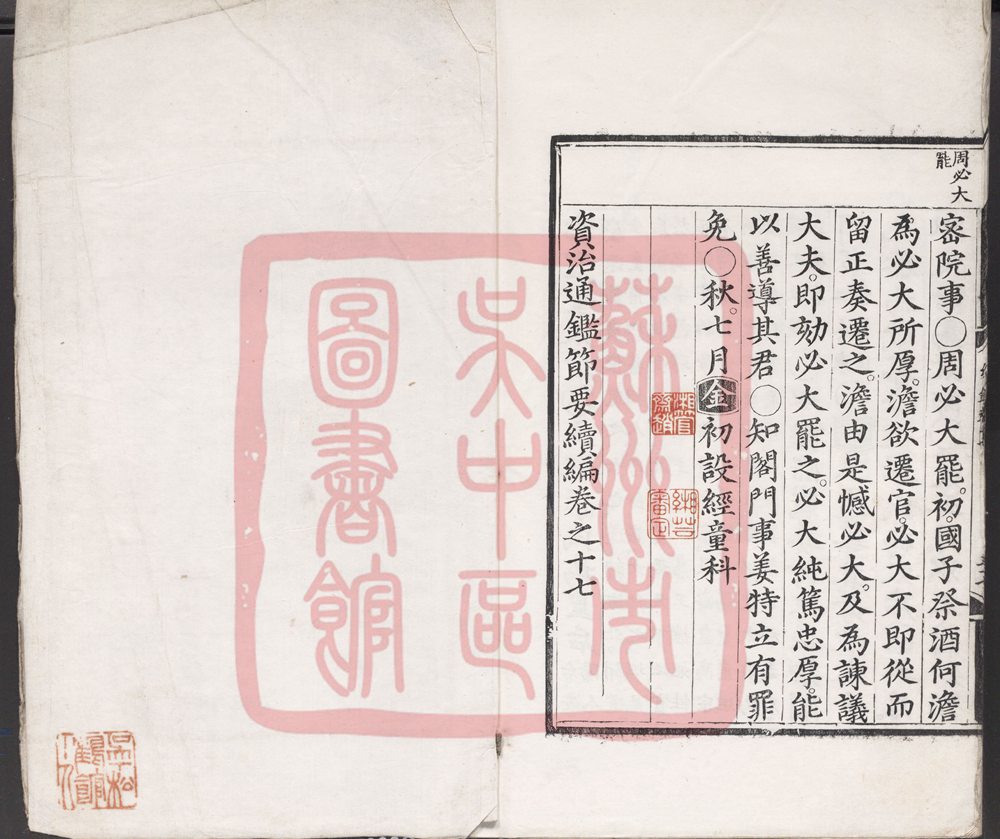 周必大
罷
密院事○周必大罷。初。國子祭酒何澹
為必大所厚。澹欲遷官。必大不即從而
留正奏遷之。澹由是憾必大。及為諫議
大夫。即劾必大罷之。必大純篤忠厚。能
以善導其君○知閤門事姜特立有罪
免○秋。七月金初設經童科
資治通鑑節要續編卷之十七
蘇州市
吳中區
圖書館